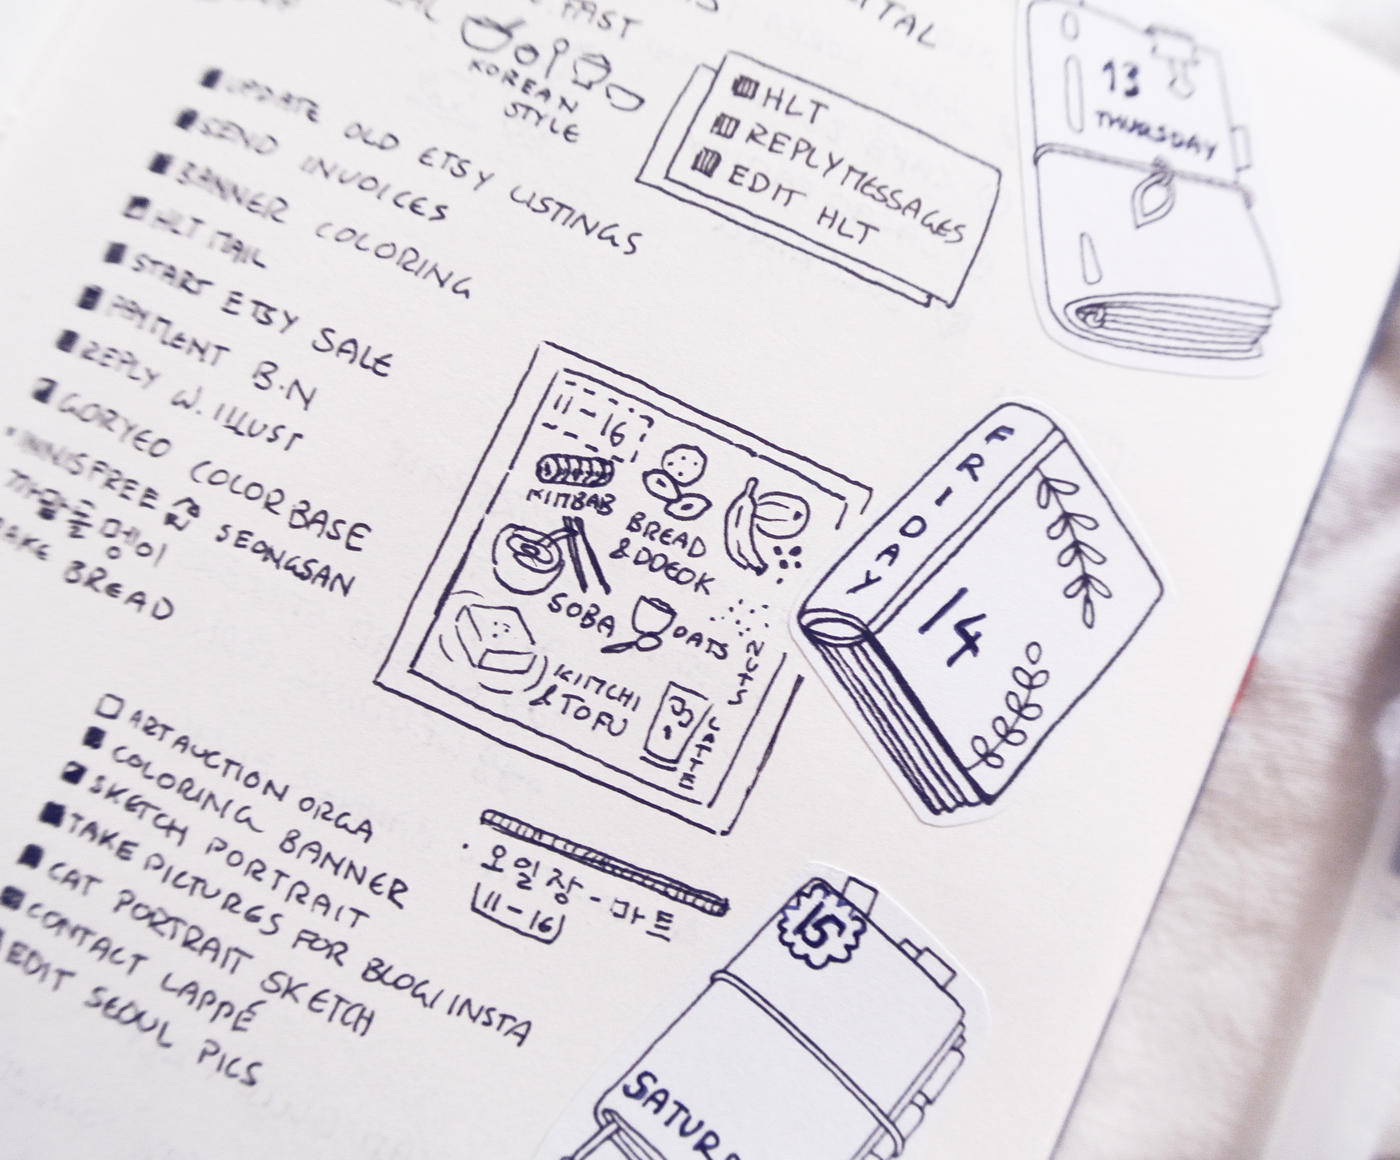 ITAL
FAST
KOREAN
STYLE
HLT
REPLY MESSAGES
EDIT HLT
13
THURSDAY
UPDATE OLD ETSY LISTINGS
SEND INVOICES
BANNER COLORING
HLT MAIL
START ETSY SALE
PAYMENT B.N
REPLY W. ILLUST
GORYEO COLORBASE
INNISFREE SEONGSAN
MAKE BREAD
11-16
KIMBAB
BREAD
& DDEOK
SOBA
OATS
NUTS
KIMCHI
& TOFU
LATTE
FRIDAY
14
ART AUCTION ORGA
COLORING BANNER
SKETCH PORTRAIT
TAKE PICTURES FOR BLOG/INSTA
CAT PORTRAIT SKETCH
CONTACT LAPPÉ
EDIT SEOUL PICS
· 오일장 - 마트
11-16
15
SATUR